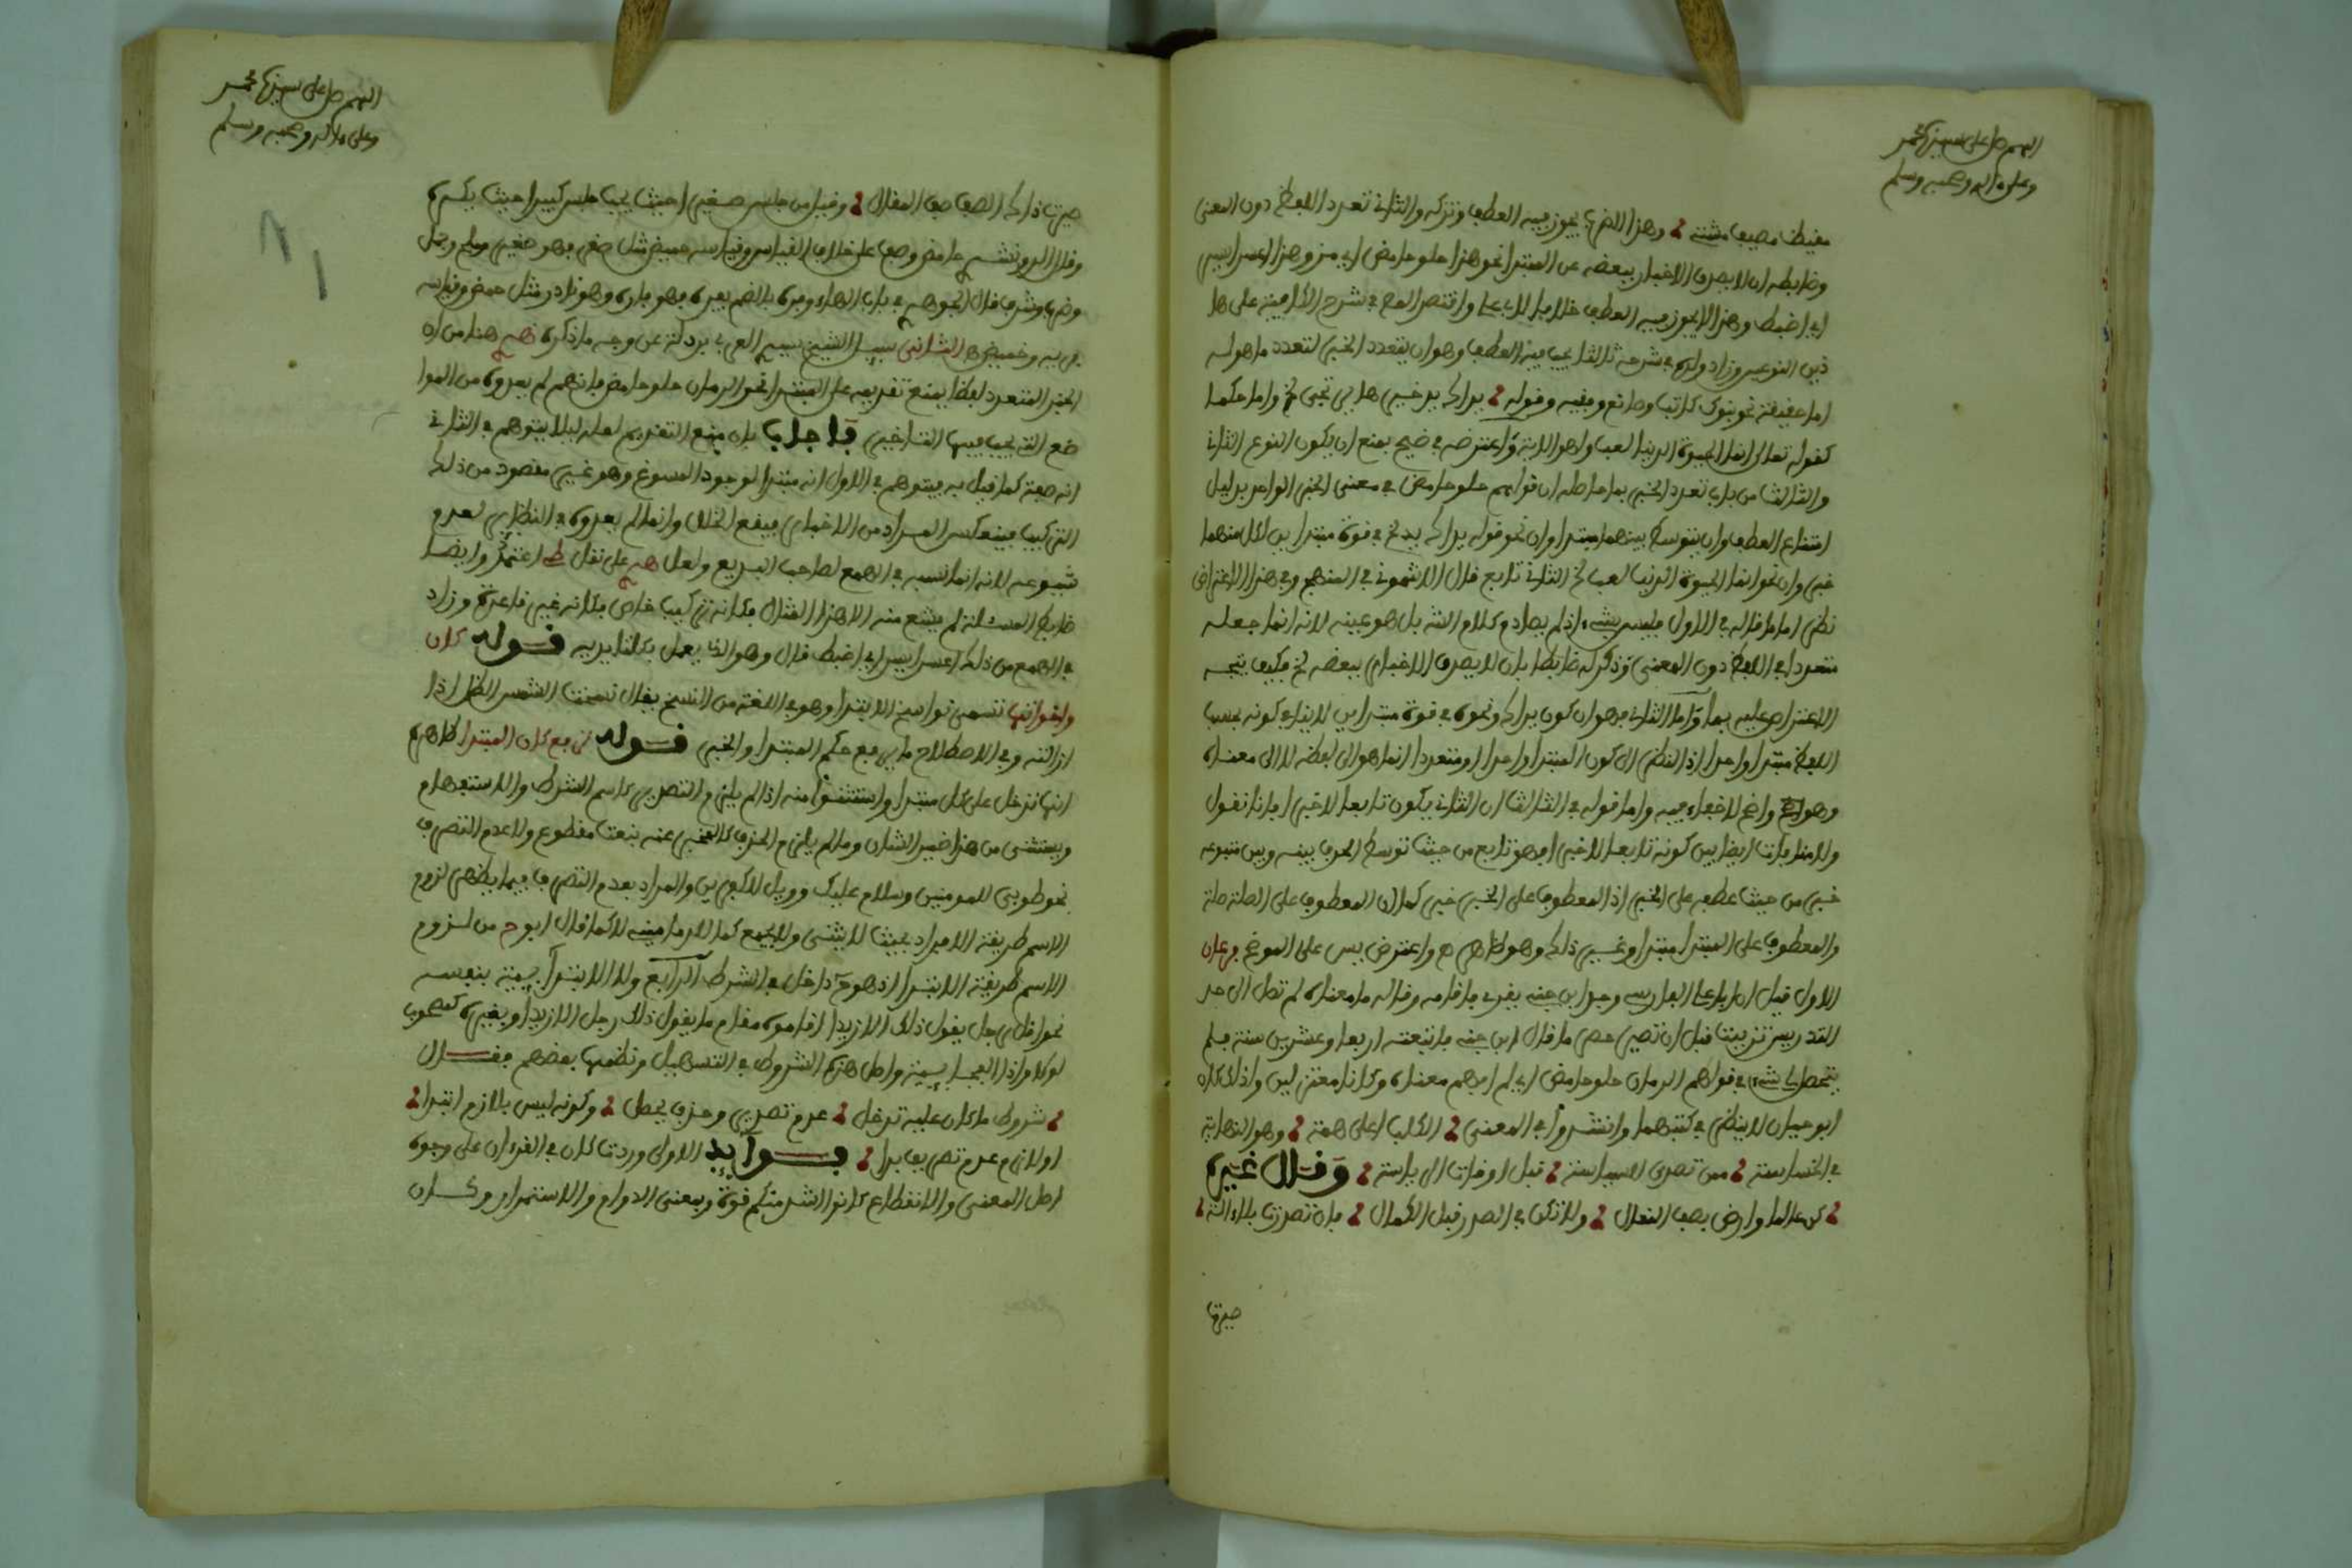 اللهم صل على سيدنا محمد
وعلى ءاله وصحبه وسلم
مقيظ مصيف مشتى وهذا الضرب يجوز فيه العطف وتركه والثاني تعدد اللفظ دون المعنى
وضابطه ان لا يصدق الاخبار ببعضه عن المبتدا نحو هذا حلو حامض اي مز وهذا اعسر ايسر
اي اضبط وهذا لا يجوز فيه العطف خلافا لابي علي واقتصر المص في شرح الكافية على ها
ذين النوعين وزاد ولده في شرحه ثالثا يجب فيه العطف وهو ان يتعدد الخبر لتعدد ما هو له
اما حقيقة نحو بنوك كاتب وصانع وفقيه وقوله يداك يد خيرها يرتجى الخ واما حكما
كقوله تعلى انما الحيوة الدنيا لعب ولهو الاية واعترضه في ضيح بمنع ان يكون النوع الثاني
والثالث من باب تعدد الخبر بما حاصله ان قولهم حلو حامض في معنى الخبر الواحد بدليل
امتناع العطف وان يتوسط بينهما مبتدا وان نحو قوله يداك يد الخ في قوة مبتداين لكل منهما
خبر وان نحو انما الحيوة الدنيا لعب الخ الثاني تابع قال الاشموني في المنهج وفي هذا الاعتراض
نظر اما ما قاله في الاول فليس بشيء اذ لم يصادم كلام الش بل هو عينه لانه انما جعله
متعددا في اللفظ دون المعنى وذكر له ضابطا بان لا يصدق الاخبار ببعضه الخ فكيف يتجه
الاعتراض عليه بما واما الثاني فهو ان كون يداك ونحوه في قوة مبتداين لا ينافي كونه بحسب
اللفظ مبتدا واحدا اذ النظر الى كون المبتدا واحدا او متعددا انما هو الى لفظه لا الى معناه
وهو واضح لا خفاء فيه واما قوله في الثالث ان الثاني يكون تابعا لا خبرا فانا نقول
ولا منافات ايضا بين كونه تابعا لا خبرا فهو تابع من حيث توسط الحرف بينه وبين متبوعه
خبر من حيث عطفه على الخبر اذ المعطوف على الخبر خبر كما ان المعطوف على الصلة صلة
والمعطوف على المبتدا مبتدا وغير ذلك وهو ظاهر واعترض يس على الموضح فرعان
الاول قيل ان ابا علي الفارسي وجد ابن جني يقرئ فاقامه وقال له ما معناه لم تصل الى حد
التدريس تزببت قبل ان تصير حصرما قال ابن جني فاتبعته اربعا وعشرين سنة فلم
يتحصل لي شيء في قولهم الرمان حلو حامض اي لم افهم معناه وكانا معتزليين ولذلك كان
ابو حيان لا ينظر في كتبهما وانشدوا في المعنى الكلب اعلى همة وهو النهاية
في الخساسة ممن تصدى للسياسة قبل اوقات الرياسة وقال غيره
كن عالما وارض بصف النعال ولا تكن في الصدر قبل الكمال فان تصدرت بلا ءالة
صيرت
اللهم صل على سيدنا محمد
وعلى ءاله وصحبه وسلم
صيرت ذاك الصف صف النعال وقيل من جلس صغيرا حيث يحب جلس كبيرا حيث يكره
وقال الدونشري حامض وصف على خلاف القياس وقياسه حميض مثل صغر فهو صغير وملح وجمل
وضرب وشرف قال الجوهري في باب الهاء وفره بالضم يفره فهو فاره وهو نادر مثل حمض وقياسه
فريه وحميض الثاني سيل الشيخ سيدي العربي بردلة عن وجه ما ذكره هنا من ان
الخبر المتعدد لفظا يمنع تقديمه على المبتدا نحو الرمان حلو حامض فانهم لم يعدوه من الموا
ضع التي يجب فيها التاخير فاجاب بان منع التقديم لعله ليلا يتوهم في الثاني
انه صفة لما قبله فيتوهم في الاول انه مبتدا لوجود المسوغ وهو غير مقصود من ذلك
التركيب فينعكس المراد من الاخبار فيقع الخلل وانما لم يعدوه في النظاير لعدم
شيوعه لانه انما نسبه في الهمع لصاحب البديع ولعل على نقل اعتمد وايضا
ضابط المسئلة لم يشع منه الا هذا المثال فكانه تركيب خاص فكانه غير قاعدة وزاد
في الهمع من ذلك اعسر ايسر اي اضبط قال وهو الذي يعمل بكلتا يديه قوله كان
واخواتها تسمى نواسخ الابتدا وهو في اللغة من النسخ يقال نسخت الشمس الظل اذا
ازالته وفي الاصطلاح ما يرفع حكم المبتدا والخبر قوله ترفع كان المبتدا ظاهره
انها تدخل على كل مبتدا واستثنوا منه اذا لم يلزم التصدير كاسم الشرط والاستفهام
ويستثنى من هذا ضمير الشان وما لم يلزم الحذف كالمخبر عنه بنعت مقطوع ولا عدم التصرف
نحو طوبى للمومنين وسلام عليك وويل للكفرين والمراد بعدم التصرف فيما يظهر لزوم
الاسم طريقة الافراد بحيث لا يثنى ولا يجمع لا كما قال ابو ح من لزوم
الاسم طريقة الابتدا اذ هو ح داخل في الشرط الرابع ولا الابتدايية بنفسه
نحو اقل رجل يقول ذلك الا زيدا اقاموه مقام ما يقول ذلك رجل الا زيدا وبغيره كمصحوب
لولا واذا الفجايية واصل هذه الشروط في التسهيل ونظمها بعضهم فقال
شروط ما كان عليه تدخل عدم تصدير وحذف يحصل وكونه ليس بلازم ابتدا
او لازم عدم تصرف بدا فوايد الاولى وردت كان في القرءان على وجوه
اصل المعنى والانقطاع كانوا اشد منكم قوة وبمعنى الدوام والاستمرار وكان